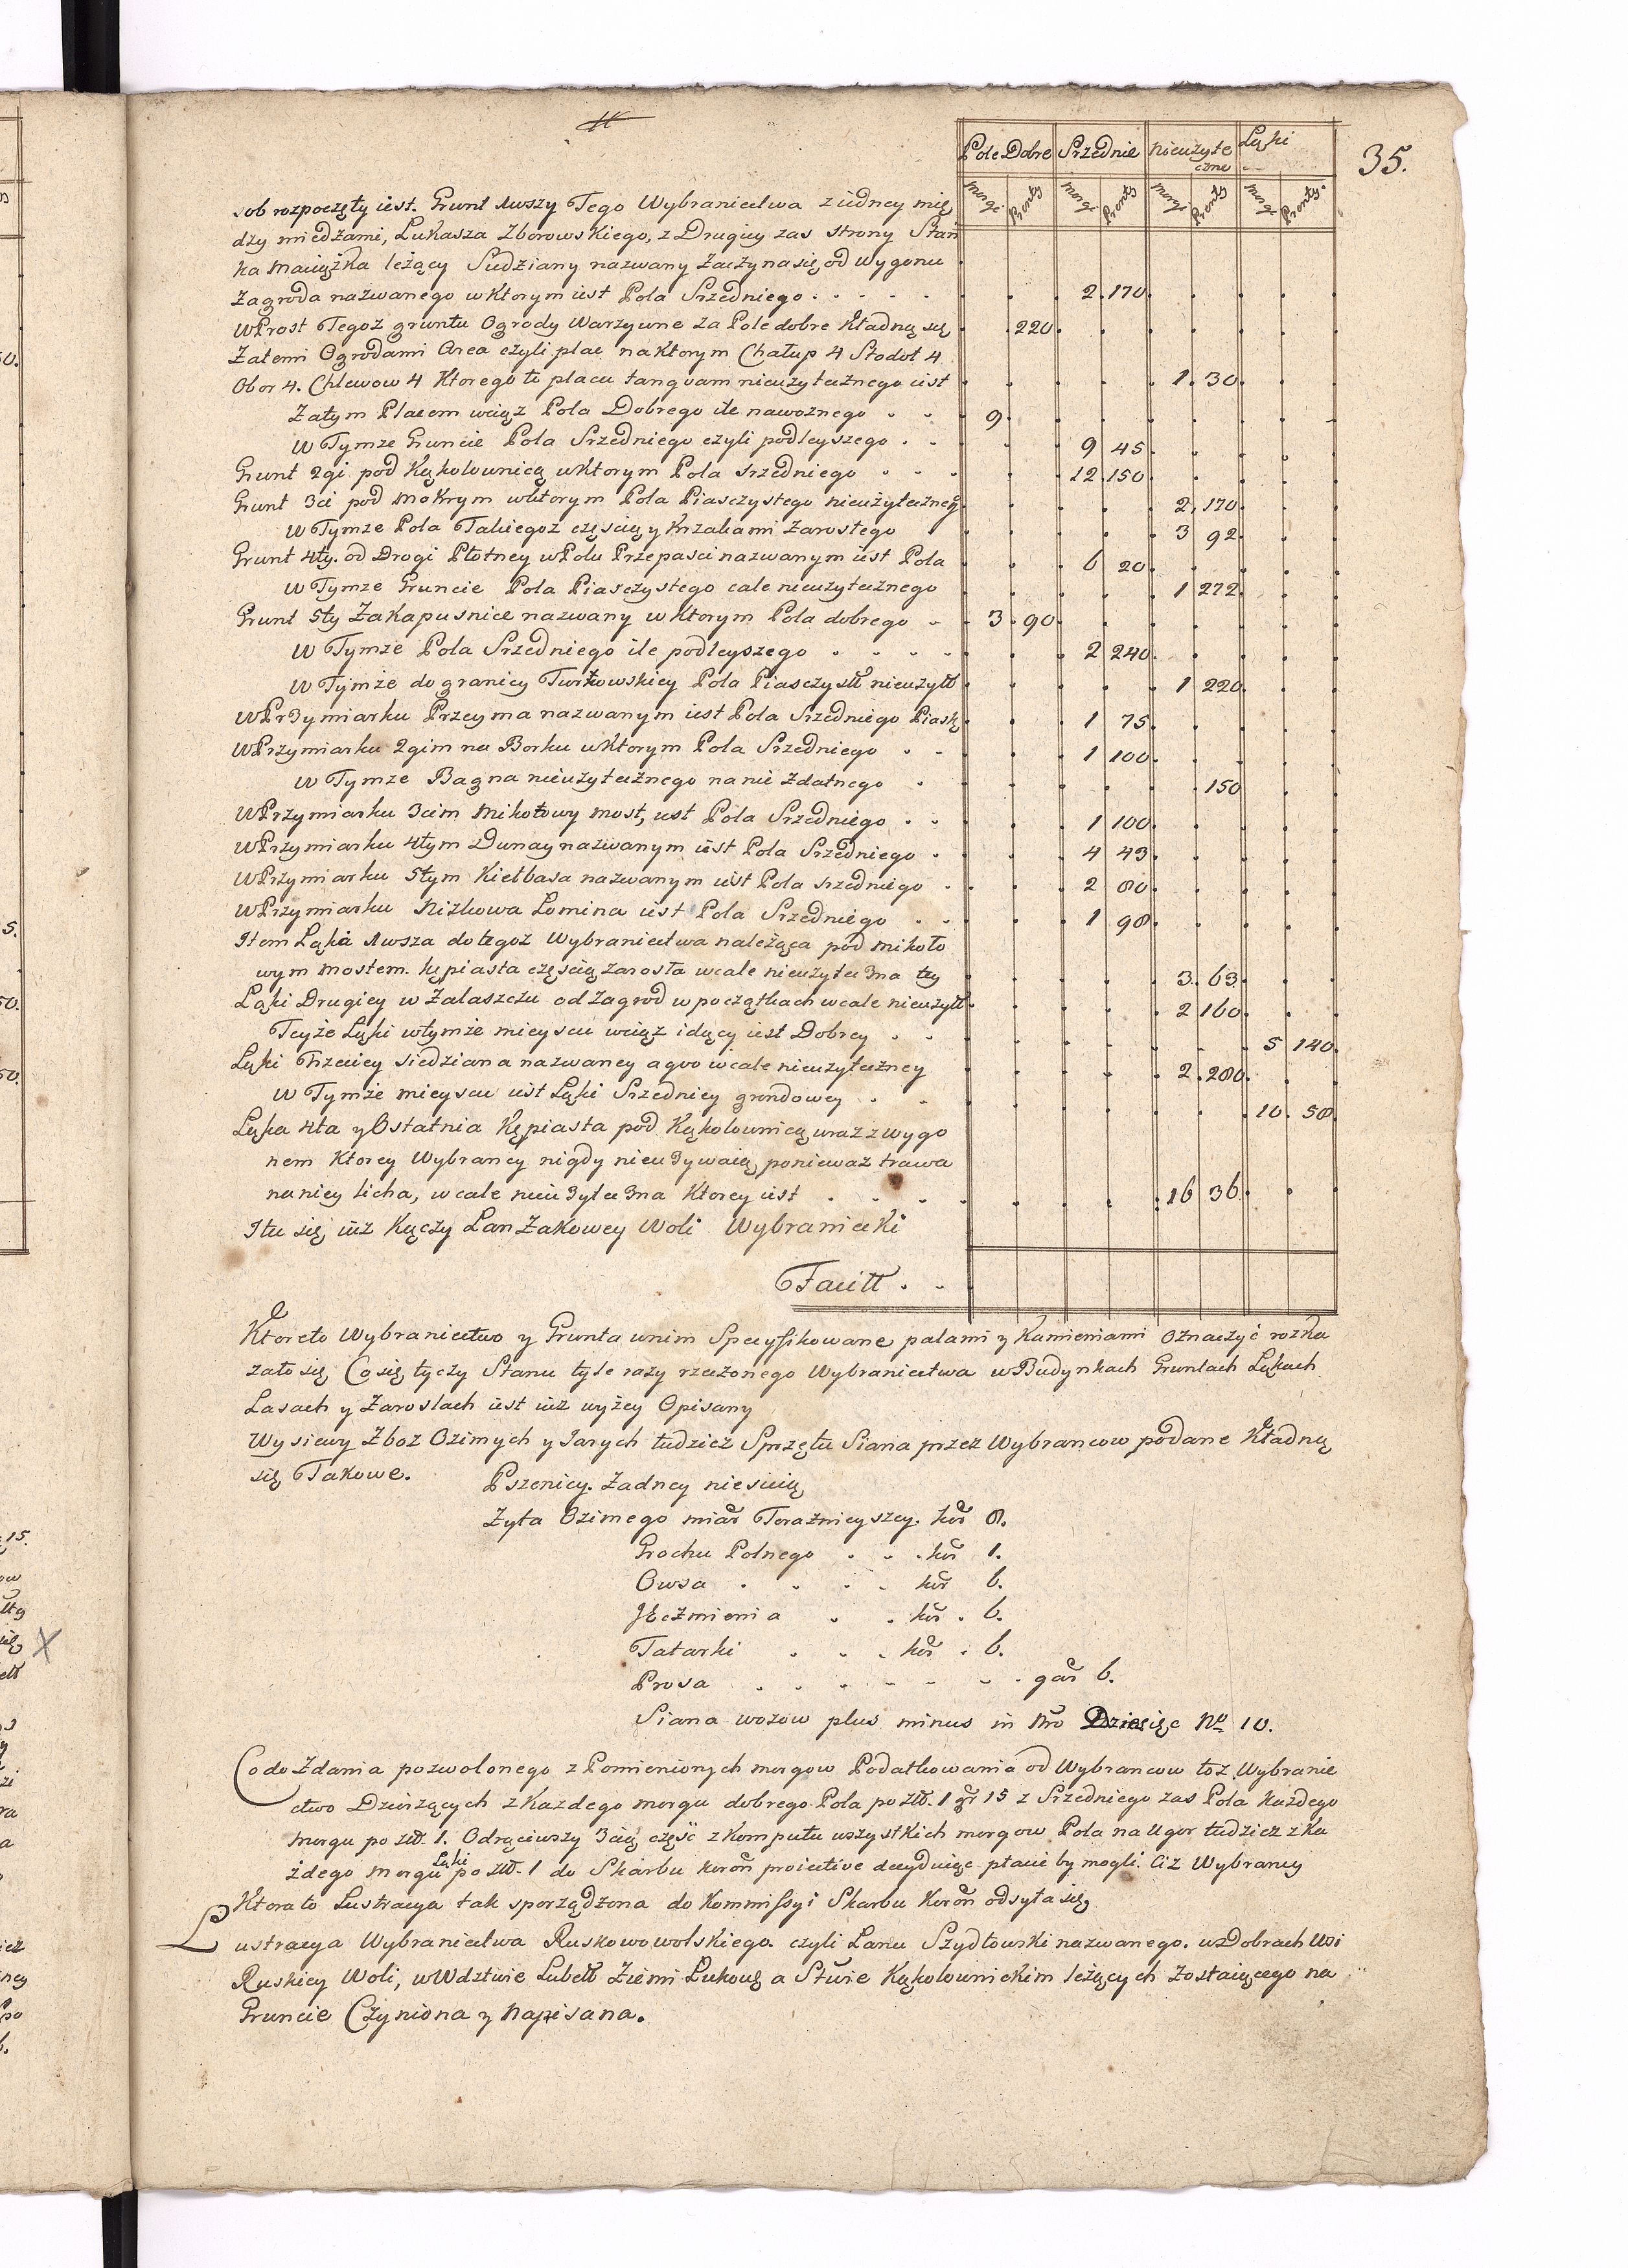 35.
Pole Dobre Srzednie Nieużyte czne Łąki
Morgi Pronty Morgi Pronty Morgi Pronty Morgi Pronty
sob rozpoczęty iest. Grunt 1wszy Tego Wybraniectwa z iedney mię
dzy miedzami, Łukasza Zborowskiego, z Drugiey zas strony Stań
ka Maciążka leżący Sudziany nazwany Zaczyna się od Wygonu
Zagroda nazwanego w Ktorym iest Pola Srzedniego . . . . . 2. 170.
W Prost Tegoz gruntu Ogrody Warzywne za Pole dobre Kładną się 220.
Zatemi Ogrodami Area czyli plac na Ktorym Chałup 4 Stodoł 4
Obor 4. Chlewow 4 Ktorego to placu tanqvam nieużytecznego iest 1. 30.
Zatym Placem wciąz Pola Dobrego ile nawoznego . . 9.
W Tymze Gruncie Pola Srzedniego czyli podleyszego . . 9 45.
Grunt 2gi pod Kąkolownicą w Ktorym Pola srzedniego . . . 12. 150.
Grunt 3ci pod Mokrym w Ktorym Pola Piasczystego nieużyteczneg 2. 170.
W Tymze Pola Takiegoz częscią y Krzakami Zarosłego 3 92.
Grunt 4ty. od Drogi Płotney w Polu Przepasci nazwanym iest Pola 6 20.
W Tymze Gruncie Pola Piasczystego cale nieużytecznego 1 272.
Grunt 5ty Zakapusnice nazwany w Ktorym Pola dobrego . 3. 90.
W Tymze Pola Srzedniego ile podleyszego . . . . 2 240.
W Tymże do granicy Turkowskiey Pola Piasczystt nieuzytt 1 220.
W Przymiarku Przeyma nazwanym iest Pola Srzedniego Piask 1 75.
W Przymiarku 2gim na Borku w Ktorym Pola Srzedniego . . 1 100.
W Tymze Bagna nieużytecznego na nic Zdatnego . 150
W Przymiarku 3cim Mikołowy Most, iest Pola Srzedniego . . 1 100.
W Przymiarku 4tym Dunay nazwanym iest Pola Srzedniego . 4 43.
W Przymiarku 5tym Kiełbasa nazwanym iest Pola srzedniego . 2 80.
W Przymiarku Nizkowa Łomina iest Pola Srzedniego . . 1 98.
Item Łąka 1wsza do tegoz Wybraniectwa należąca pod Mikoło
wym Mostem. kępiasta częscią zarosła wcale nieużyteczna tey 3. 63.
Łąki Drugiey w Zalaszczu od Zagrod w początkach wcale nieuzytt 2 160.
Teyże Łąki w tymże mieyscu wciąż idący iest Dobrey . . 5 140.
Łąki Trzeciey Siedziana nazwaney a qvo wcale nieużyteczney 2. 280.
W Tymże mieyscu iest Łąki Srzedniey grondowey . . 10. 58.
Łąka 4ta y Ostatnia Kępiasta pod Kąkolownicą wraz z wygo
nem Ktorey Wybrancy nigdy nieużywaią, poniewaz trawa
na niey licha, wcale nieużyteczna Ktorey iest . . . . 16 36.
I tu się iuż Kączy Łan Zakowey Woli Wybraniecki
Facitt . .
Ktoreto Wybraniectwo y Grunta w nim Specyfikowane palami y Kamieniami Oznaczyć rozka
zało się Co się tyczy Stanu tyle razy rzeczonego Wybraniectwa w Budynkach Gruntach Łąkach
Lasach y Zaroslach iest iuz wyżey Opisany
Wysiewy Zboz Ozimych y Jarych tudziez Sprzętu Siana przez Wybrancow podane Kładną
się Takowe.
Pszenicy. Zadney niesieią
Zyta Ozimego miar Terażnieyszey. kor 8.
Grochu Polnego . . . kor 1.
Owsa . . . . kor 6.
Jęczmienia . . kor . 6.
Tatarki . . . kor . 6.
Prosa . . . . . . . gar 6.
Siana wozow plus minus in Nro Dziesięc No 10.
Co do Zdania pozwolonego z Pomienionych morgow Podatkowania od Wybrancow toz Wybranie
ctwo Dzierżących z Kazdego morgu dobrego Pola po złł. 1 gr 15 z Srzedniego zas Pola Każdego
morgu po złł. 1. Odrąciwszy 3cią częsć z Komputu wszystkich morgow Pola na Ugor tudziez z Ka
żdego morgu Łąki po złł. 1 do Skarbu koron proiective decyduiąc płacic by mogli. Ciż Wybrancy
Ktora to Lustracya tak sporządzona do Kommissyi Skarbu Koron odsyła się
Lustracya Wybraniectwa Ruskowowolskiego. czyli Łanu Szydłowski nazwanego. w Dobrach Wsi
Ruskiey Woli, w Wdztwie Lubell Ziemi Łukows a Stwie Kąkolownickim leżących Zostaiącego na
Gruncie Czyniona y Napisana.